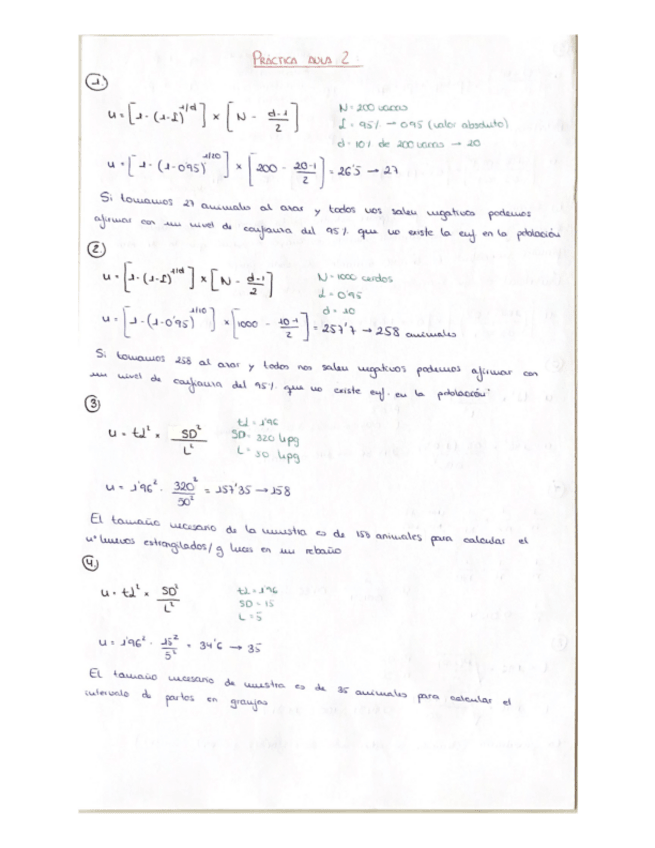 PRÁCTICA AULA 2
1.
n = [1 - (1-I)^1/d] × [N - d-1/2]
N = 200 vacas
I = 95% → 0'95 (valor absoluto)
d = 10% de 200 vacas → 20
n = [1 - (1-0'95)^1/20] × [200 - 20-1/2] = 26'5 → 27
Si tomamos 27 animales al azar y todos nos salen negativos podemos
afirmar con un nivel de confianza del 95% que no existe la enf en la población
2.
n = [1 - (1-I)^1/d] × [N - d-1/2]
N = 1000 cerdos
I = 0'95
d = 10
n = [1 - (1-0'95)^1/10] × [1000 - 10-1/2] = 257'7 → 258 animales
Si tomamos 258 al azar y todos nos salen negativos podemos afirmar con
un nivel de confianza del 95% que no existe enf. en la población
3
n = tα² × SD²/L²
tα = 1'96
SD = 320 hpg
L = 50 hpg
n = 1'96² · 320²/50² = 157'35 → 158
El tamaño necesario de la muestra es de 158 animales para calcular el
nº huevos estrongilados/g heces en un rebaño
4.
n = tα² × SD²/L²
tα = 1'96
SD = 15
L = 5
n = 1'96² · 15²/5² = 34'6 → 35
El tamaño necesario de muestra es de 35 animales para calcular el
intervalo de partos en granjas